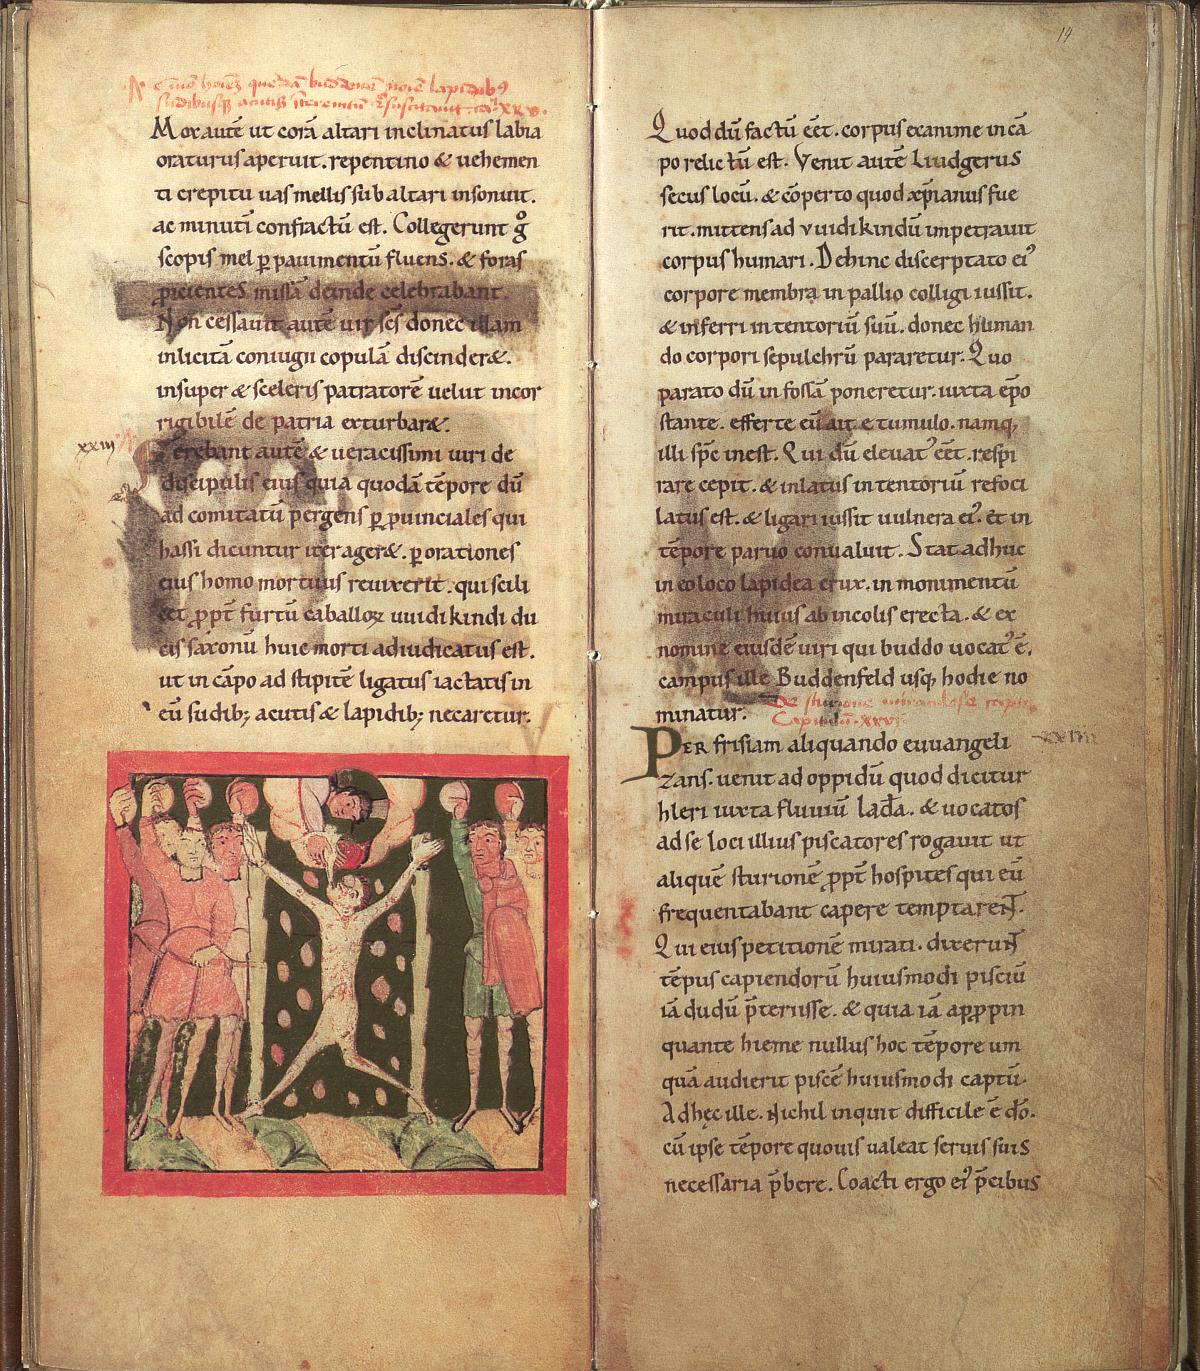 sudibusq; acutis interemtū resuscitauit. ca. xxv.
Mox autē ut corā altari inclinatus labia
oraturus aperuit. repentino & uehemen
ti crepitu uas mellis sub altari insonuit.
ac minutī confractū est. Collegerunt g̊
scopis mel ꝑ pauimentū fluens. & foras
ꝓicientes missā deinde celebrabant.
Non cessauit autē uir scs̄ donec illam
inlicitā coniugii copulā discinder&.
insuper & sceleris patratorē uelut incor
rigibilē de patria exturbar&.
xxiiii
Ferebant autē & ueracissimi uiri de
discipulis eius quia quodā tēpore dū
ad comitatū pergens ꝑ ꝓuinciales qui
hassi dicuntur iter ager&. ꝑ orationes
eius homo mortuus reuixerit. qui scili
cet ꝓpt̄ furtū caballoꝝ uuidikindi du
cis saxonū huic morti adiudicatus est.
ut in cāpo ad stipitē ligatus iactatis in
eū sudib; acutis & lapidib; necaretur.
14
Quod dū factū eēt. corpus exanime in cā
po relictū est. Venit autē Liudgerus
secus locū. & cōperto quod xp̄ianus fue
rit. mittens ad vuidikindū impetrauit
corpus humari. Dehinc discerptato eiꝰ
corpore membra in pallio colligi iussit.
& inferri in tentoriū suū. donec human
do corpori sepulchrū pararetur. Quo
parato dū in fossā poneretur. iuxta ep̄o
stante. efferte eū ait e tumulo. namq;
illi sp̄c inest. Qui dū eleuatꝰ eēt. respi
rare cepit. & inlatus in tentoriū refoci
latus est. & ligari iussit uulnera eiꝰ. et in
tēpore paruo conualuit. Stat adhuc
in eo loco lapidea crux. in monumentū
miraculi huius ab incolis erecta. & ex
nomine eiusdē uiri qui buddo uocatꝰ ē.
campus ille Buddenfeld usq; hodie no
minatur.
De sturione
Capitulū. xxvi.
Per frisiam aliquando euuangeli
zans. uenit ad oppidū quod dicitur
hleri iuxta fluuiū Lađa. & uocatos
ad se loci illius piscatores rogauit ut
aliquē sturionē ꝓpt̄ hospites qui eū
frequentabant capere temptarent.
Qui eius petitionē mirati. dixerunt
tēpus capiendorū huiusmodi pisciū
iā dudū p̄terisse. & quia iā apꝓpin
quante hieme nullus hoc tēpore um
quā audierit piscē huiusmodi captū.
Ad hęc ille. Nichil inquit difficile ē dō.
cū ipse tēpore quouis ualeat seruis suis
necessaria p̄bere. Coacti ergo eiꝰ p̄cibus